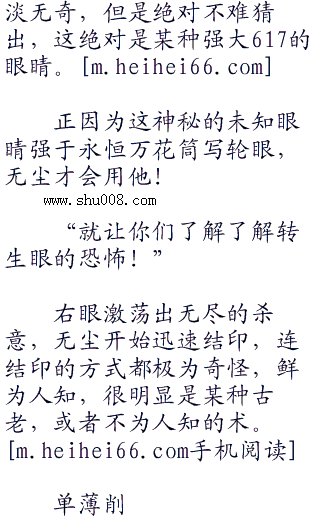 淡无奇，但是绝对不难猜
出，这绝对是某种强大617的
眼睛。[m.heihei66.com]
正因为这神秘的未知眼
睛强于永恒万花筒写轮眼，
无尘才会用他！
www.shu008.com
“就让你们了解了解转
生眼的恐怖！”
右眼激荡出无尽的杀
意，无尘开始迅速结印，连
结印的方式都极为奇怪，鲜
为人知，很明显是某种古
老，或者不为人知的术。
[m.heihei66.com手机阅读]
单薄削